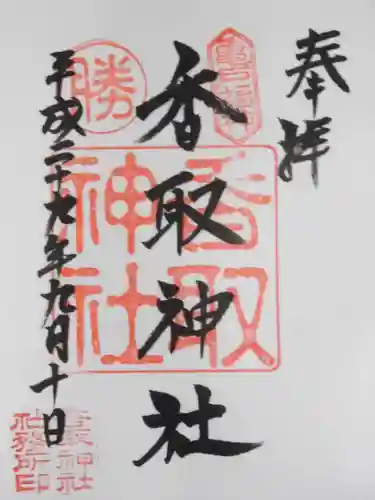 奉拝
香取神社
平成二十九年九月十日
勝
香取
神社
香取神社
社務所印